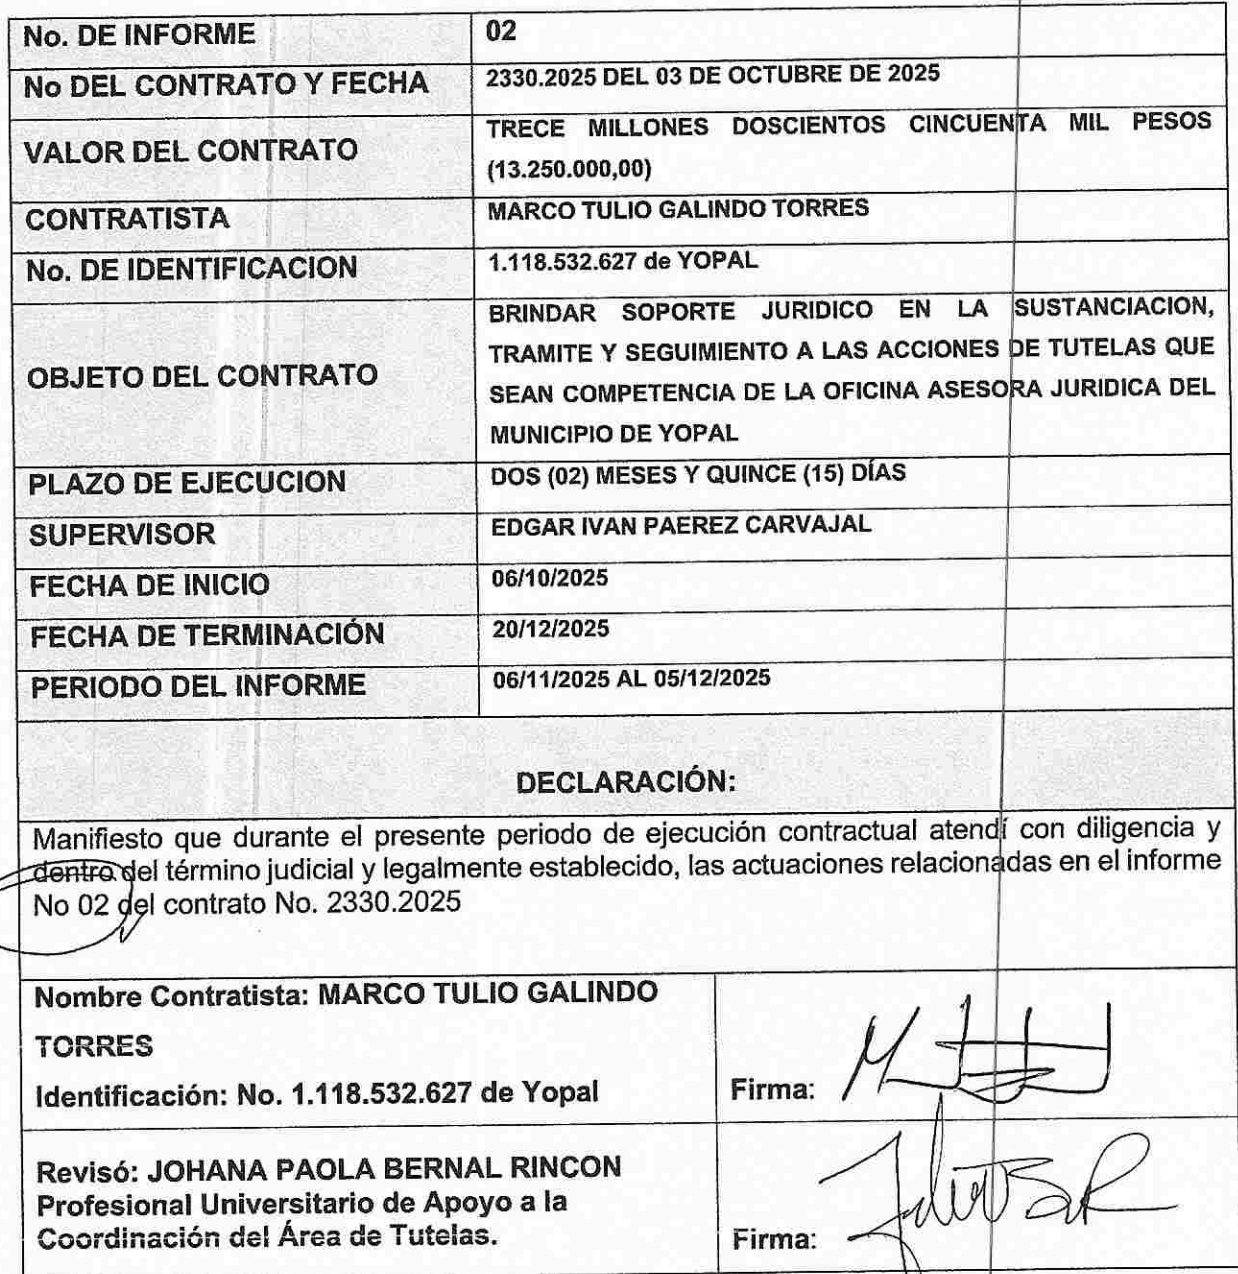 No. DE INFORME 02
No DEL CONTRATO Y FECHA 2330.2025 DEL 03 DE OCTUBRE DE 2025
VALOR DEL CONTRATO TRECE MILLONES DOSCIENTOS CINCUENTA MIL PESOS
(13.250.000,00)
CONTRATISTA MARCO TULIO GALINDO TORRES
No. DE IDENTIFICACION 1.118.532.627 de YOPAL
OBJETO DEL CONTRATO BRINDAR SOPORTE JURIDICO EN LA SUSTANCIACION,
TRAMITE Y SEGUIMIENTO A LAS ACCIONES DE TUTELAS QUE
SEAN COMPETENCIA DE LA OFICINA ASESORA JURIDICA DEL
MUNICIPIO DE YOPAL
PLAZO DE EJECUCION DOS (02) MESES Y QUINCE (15) DÍAS
SUPERVISOR EDGAR IVAN PAEREZ CARVAJAL
FECHA DE INICIO 06/10/2025
FECHA DE TERMINACIÓN 20/12/2025
PERIODO DEL INFORME 06/11/2025 AL 05/12/2025
DECLARACIÓN:
Manifiesto que durante el presente periodo de ejecución contractual atendí con diligencia y
dentro del término judicial y legalmente establecido, las actuaciones relacionadas en el informe
No 02 del contrato No. 2330.2025
Nombre Contratista: MARCO TULIO GALINDO
TORRES
Identificación: No. 1.118.532.627 de Yopal
Firma:
Revisó: JOHANA PAOLA BERNAL RINCON
Profesional Universitario de Apoyo a la
Coordinación del Área de Tutelas.
Firma: